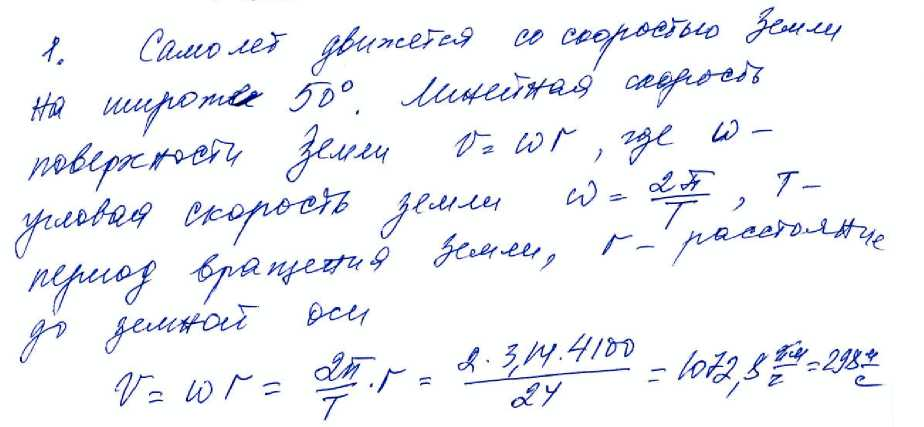 1. Самолет движется со скоростью Земли
на широте 50°. Линейная скорость
поверхности Земли v = ωr, где ω –
угловая скорость земли ω = 2π/T, T –
период вращения Земли, r – расстояние
до земной оси
V = ωr = 2π/T · r = 2 · 3,14 · 4100/24 = 1072,8 км/ч = 298 м/с